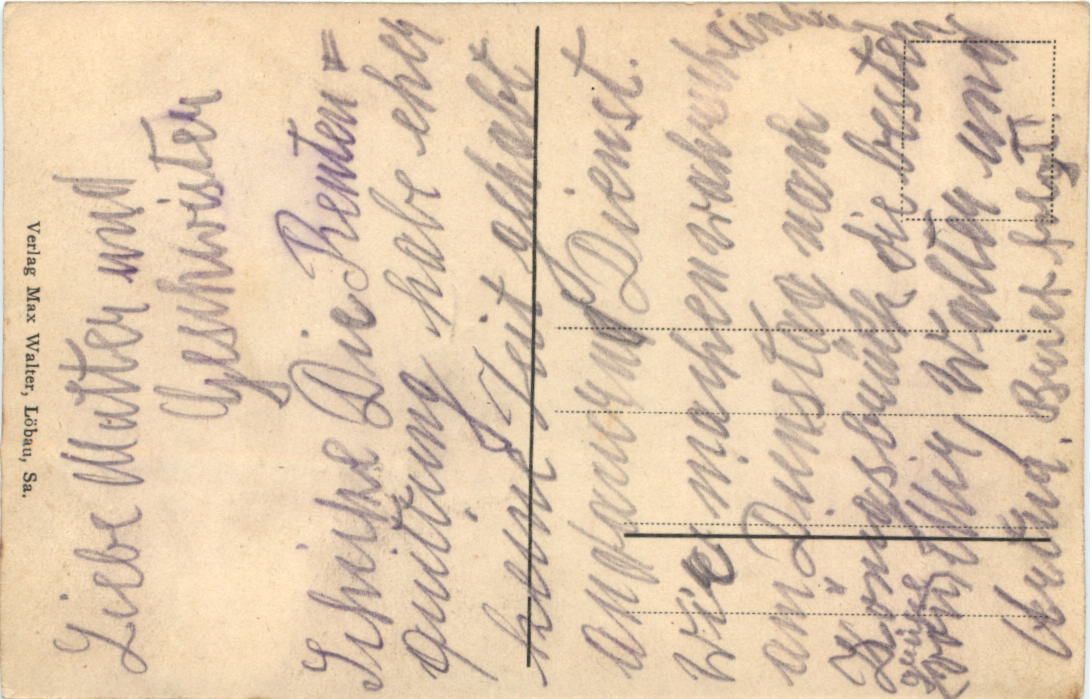 Liebe Mutter und
Geschwister
Schicke Die Renten=
quittung habe eher
keine Zeit gehabt
Dienst.
wir machen wahrscheinlich
am Dienstag nach
Königsbrück die besten
Grüße von Willy, Walter und
Brief folgt.
Verlag Max Walter, Löbau, Sa.